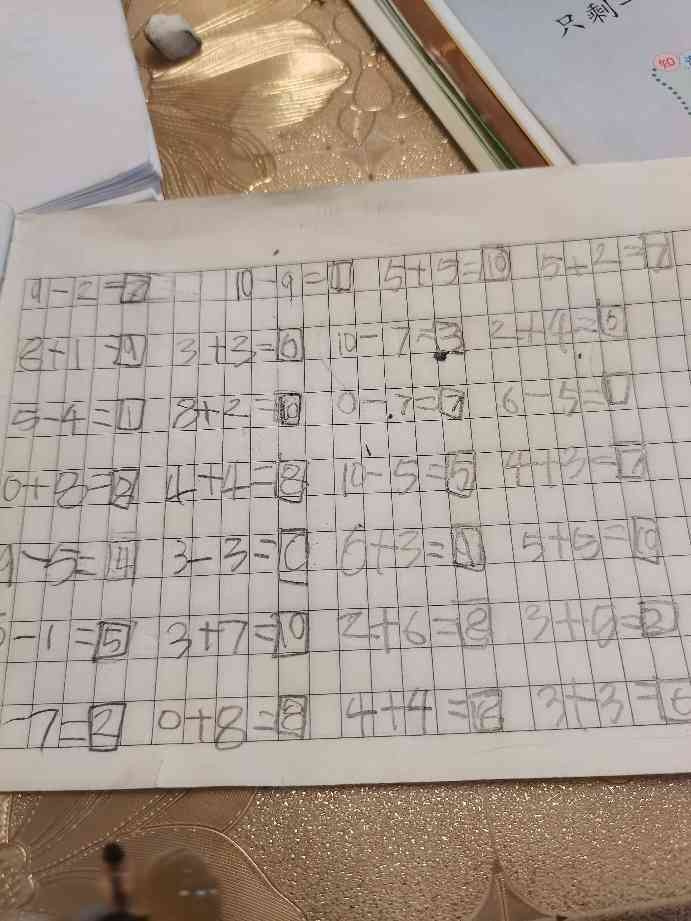 只剩
知
9-2=7 10-9=1 5+5=10 5+2=7
8+1=9 3+3=6 10-7=3 2+4=6
5-4=1 8+2=10 0-7=7 6-5=1
0+8=8 4+4=8 10-5=5 4+3=7
9-5=4 3-3=0 6+3=9 5+5=10
-1=5 3+7=10 2+6=8 3+0=
-7=2 0+8=8 4+4= 3+3=6